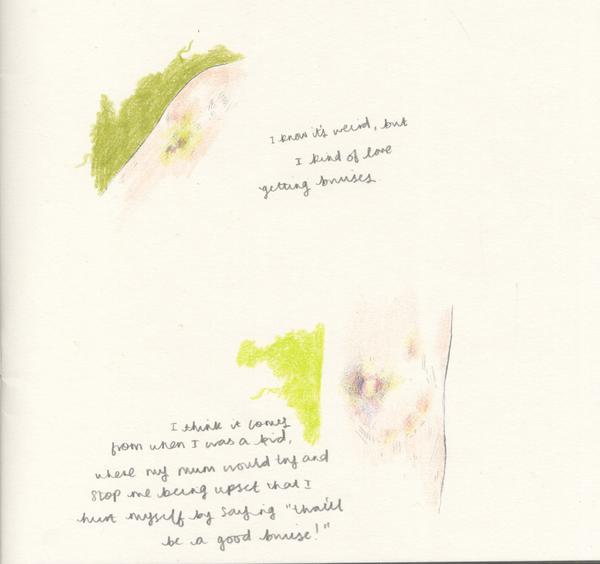 I know it's weird, but
I kind of love
getting bruises.
I think it comes
from when I was a kid,
where my mum would try and
stop me being upset that I
hurt myself by saying "that'll
be a good bruise!"